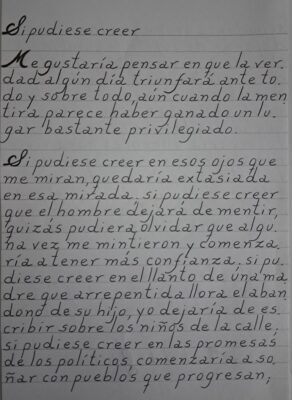 Si pudiese creer
Me gustaría pensar en que la ver.
dad algún día triunfará ante to.
do y sobre todo, aún cuando la men
tira parece haber ganado un lu.
gar bastante privilegiado.
Si pudiese creer en esos ojos que
me miran, quedaría extasiada
en esa mirada. si pudiese creer
que el hombre dejará de mentir,
quizás pudiera olvidar que algu.
na vez me mintieron y comenza.
ría a tener más confianza. si pu.
diese creer en el llanto de una ma
dre que arrepentida llora el aban
dono de su hijo, yo dejaría de es.
cribir sobre los niños de la calle,
si pudiese creer en las promesas
de los políticos, comenzaría a so.
ñar con pueblos que progresan,